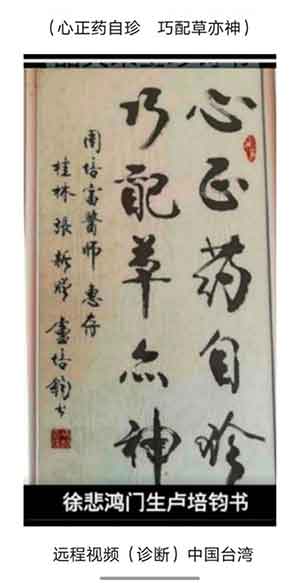 （心正药自珍　巧配草亦神）
心正药自珍
巧配草亦神
周培富醫師 惠存
桂林 張 盧培鈞书
徐悲鸿门生卢培钧书
远程视频（诊断）中国台湾